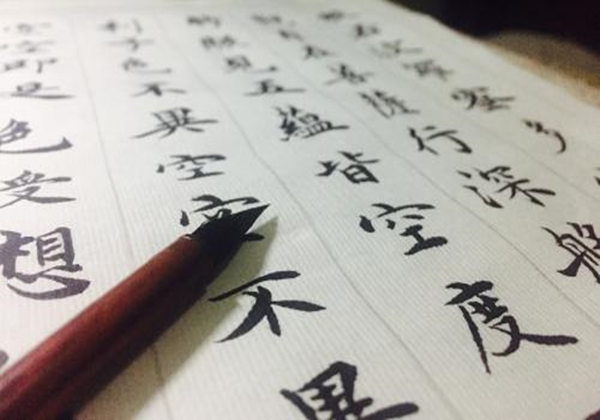 般若波羅蜜多
觀自在菩薩行深般
時照見五蘊皆空度
利子色不異空空不異
空空即是色受想